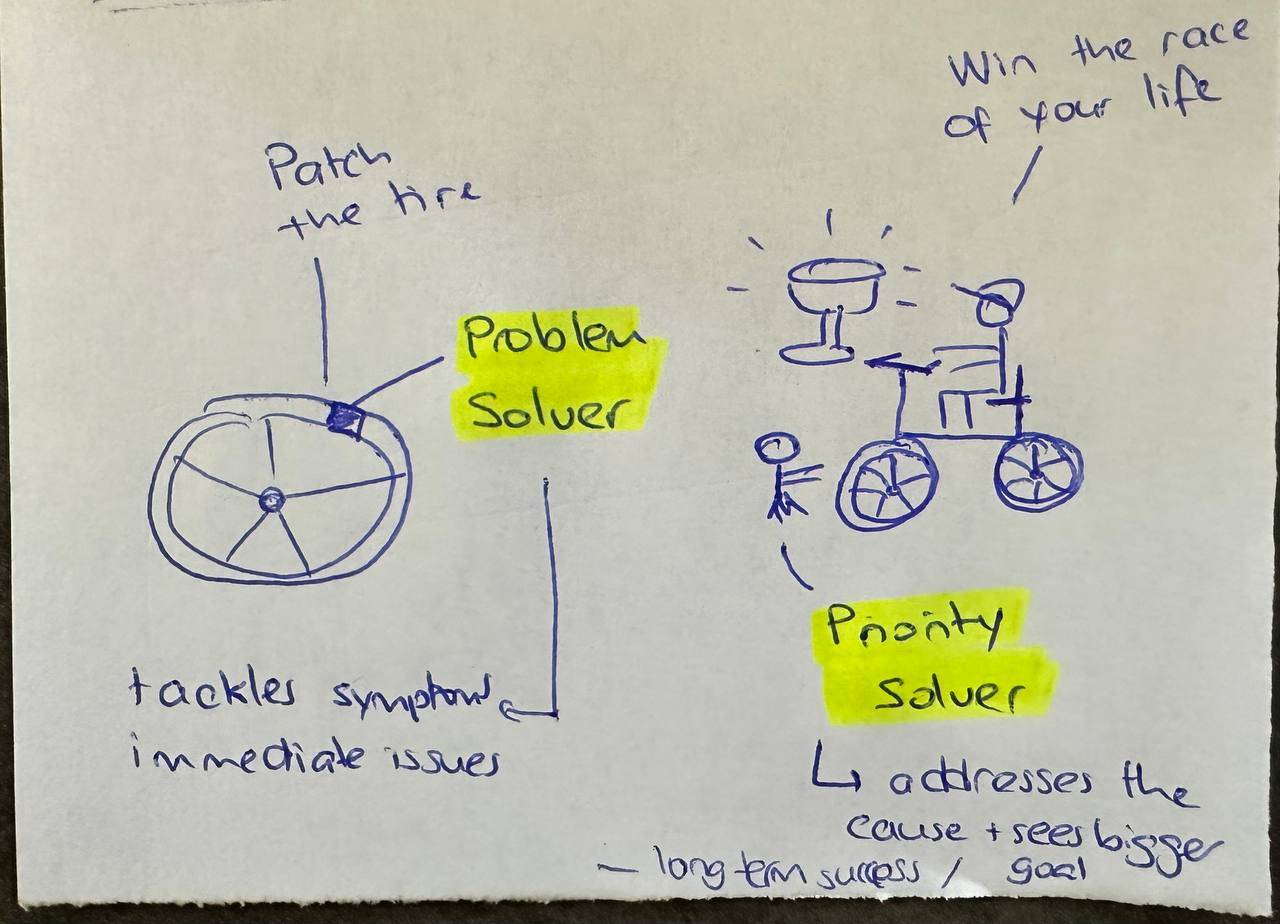 Patch
the tire
Problem
Solver
tackles symptoms
immediate issues
Win the race
of your life
Priority
Solver
↳ addresses the
cause + sees bigger
– long term success / goal